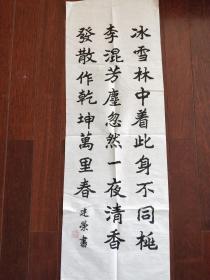 冰雪林中着此身不同桃
李混芳塵忽然一夜清香
發散作乾坤萬里春
建榮書